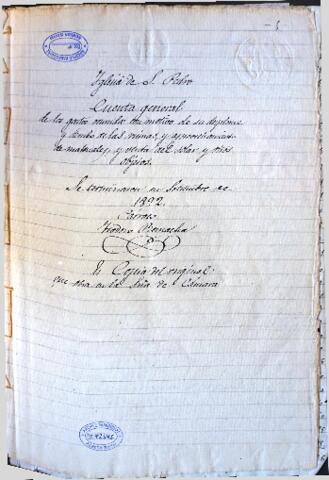 Iglesia de S. Pedro
Cuenta general
de los gastos ocurridos con motivo de su desplome
y derribo de las ruinas, y aprovechamiento
de materiales, y venta del solar y otros
objetos.
Se terminaron en Setiembre de
1892.
Parroco
Isidoro
Es Copia del original
que obra en la Sria de Camara